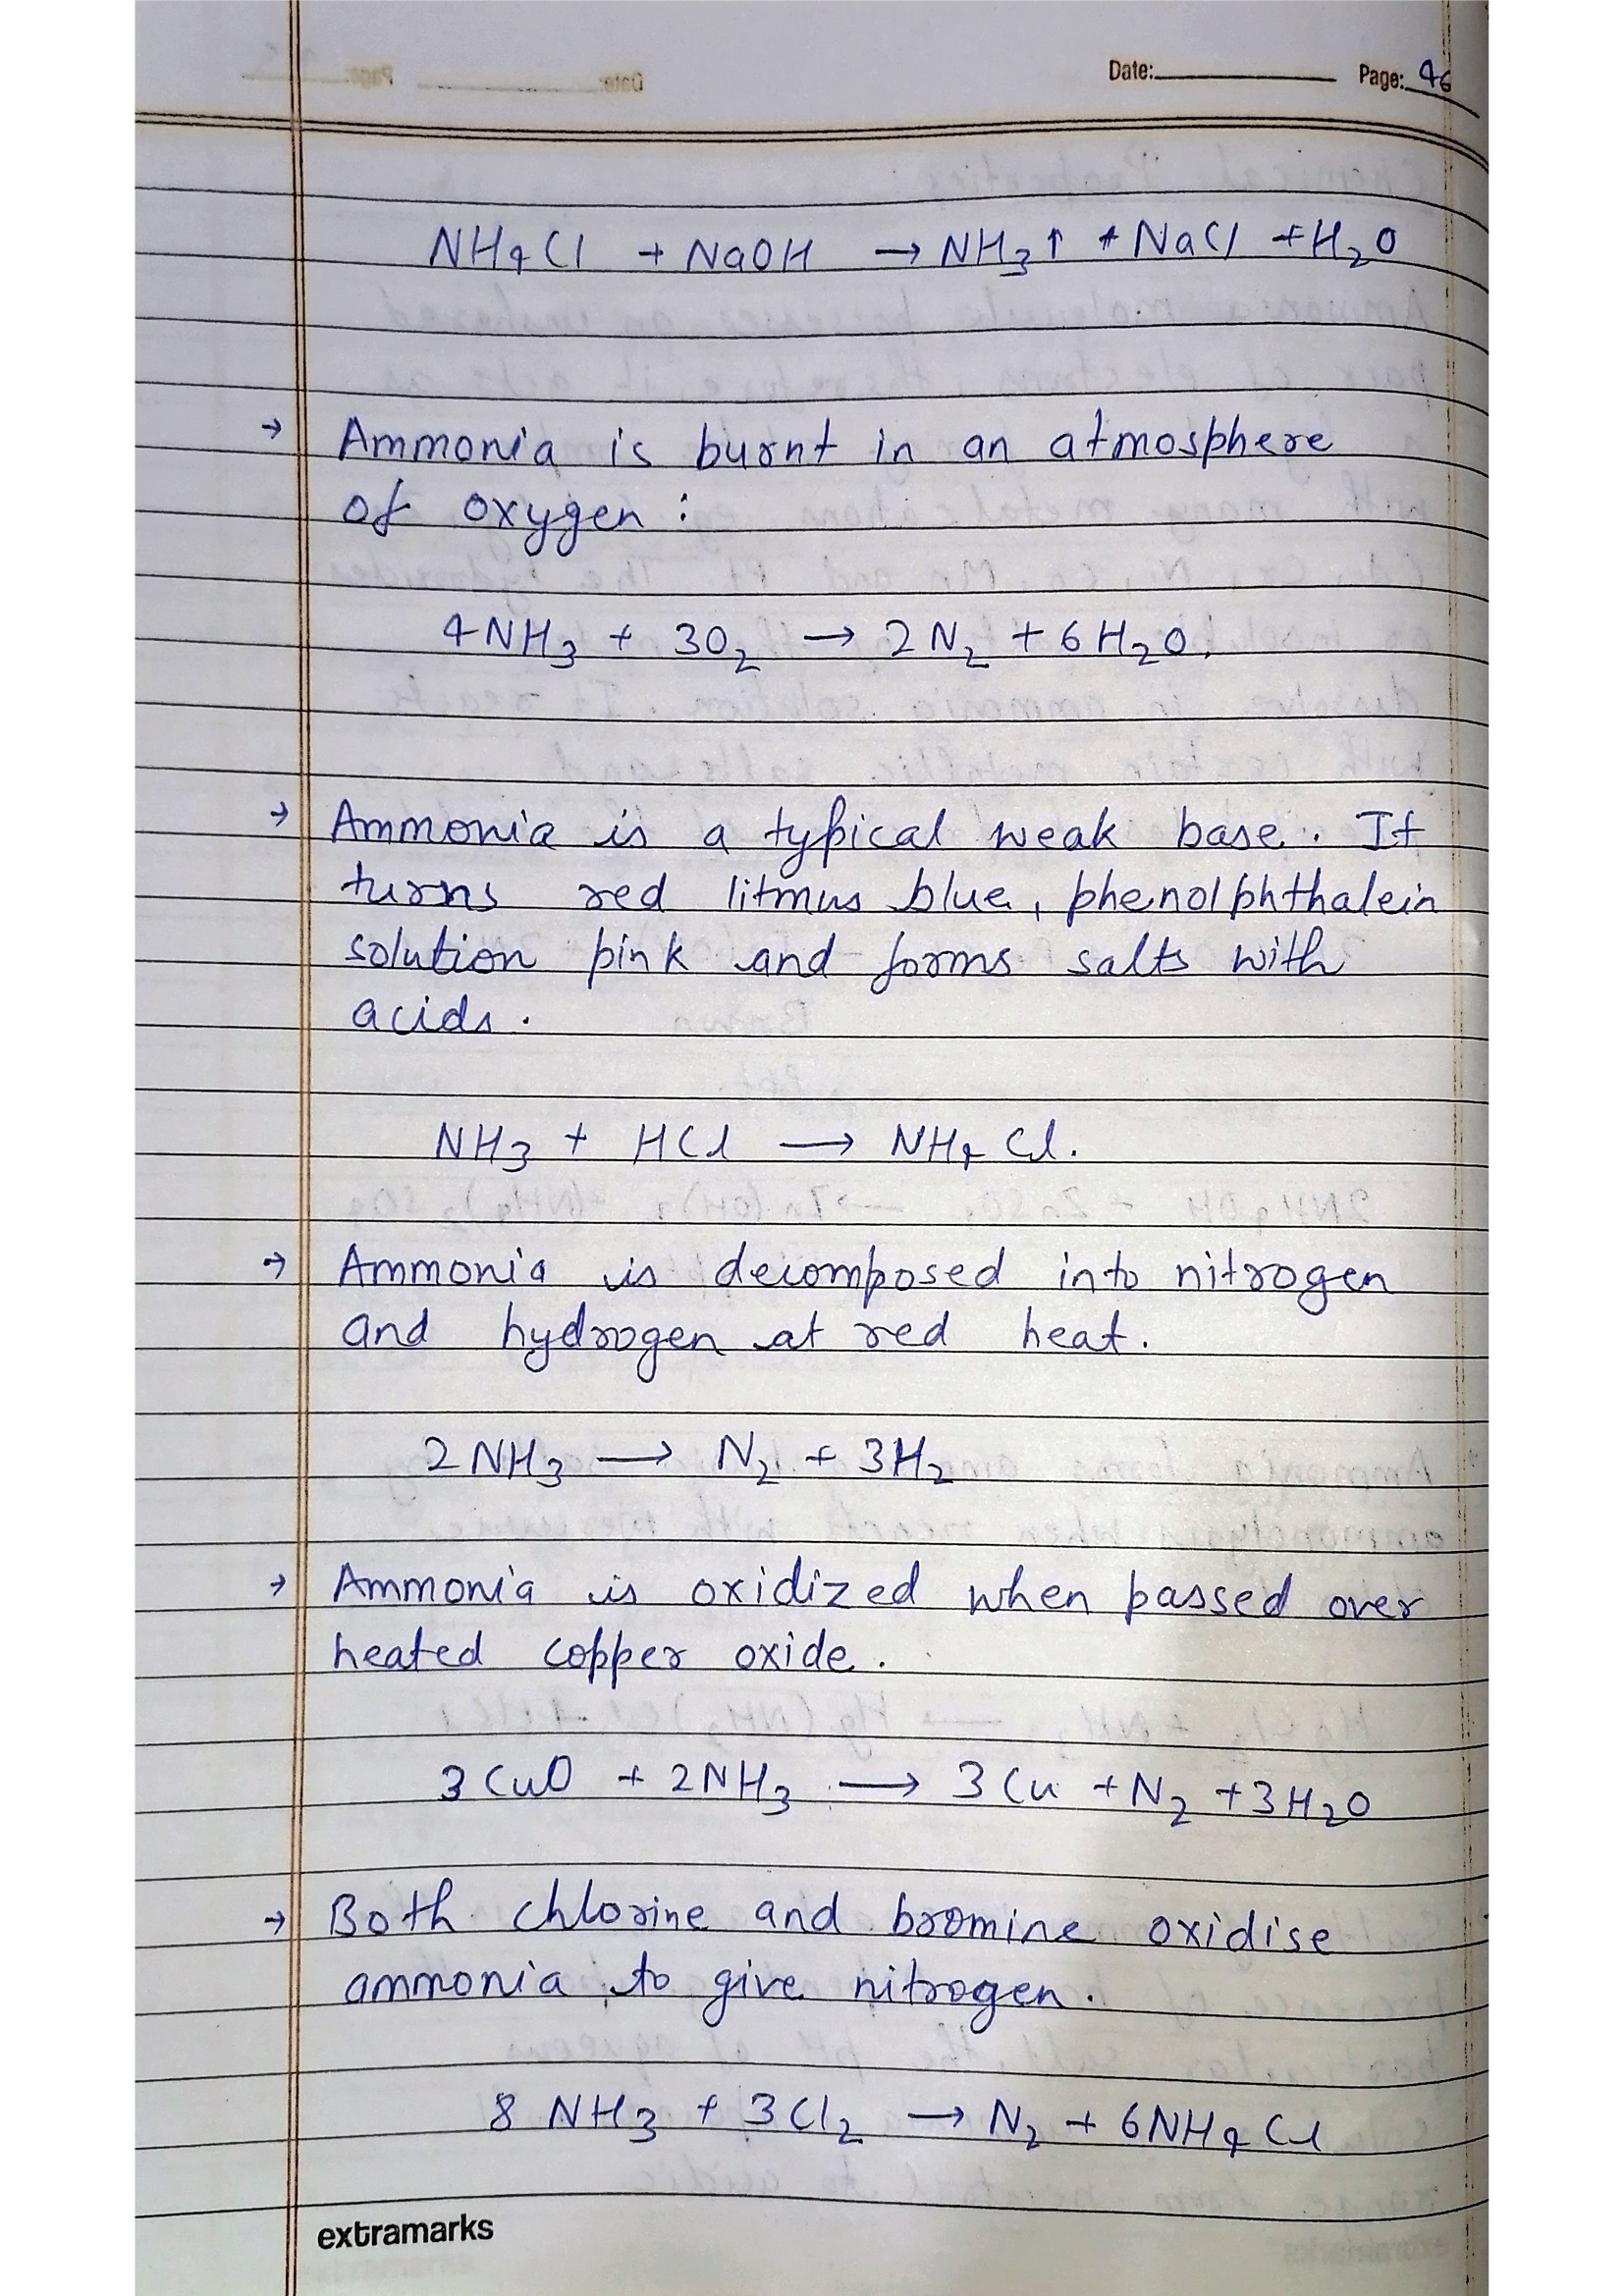 Date: Page: 46
NH4Cl + NaOH → NH3↑ + NaCl + H2O
→ Ammonia is burnt in an atmosphere
of oxygen :
4NH3 + 3O2 → 2N2 + 6H2O.
→ Ammonia is a typical weak base. It
turns red litmus blue, phenolphthalein
solution pink and forms salts with
acids.
NH3 + HCl → NH4Cl.
→ Ammonia is decomposed into nitrogen
and hydrogen at red heat.
2NH3 → N2 + 3H2
→ Ammonia is oxidized when passed over
heated copper oxide.
3CuO + 2NH3 → 3Cu + N2 + 3H2O
→ Both chlorine and bromine oxidise
ammonia to give nitrogen.
8NH3 + 3Cl2 → N2 + 6NH4Cl
extramarks